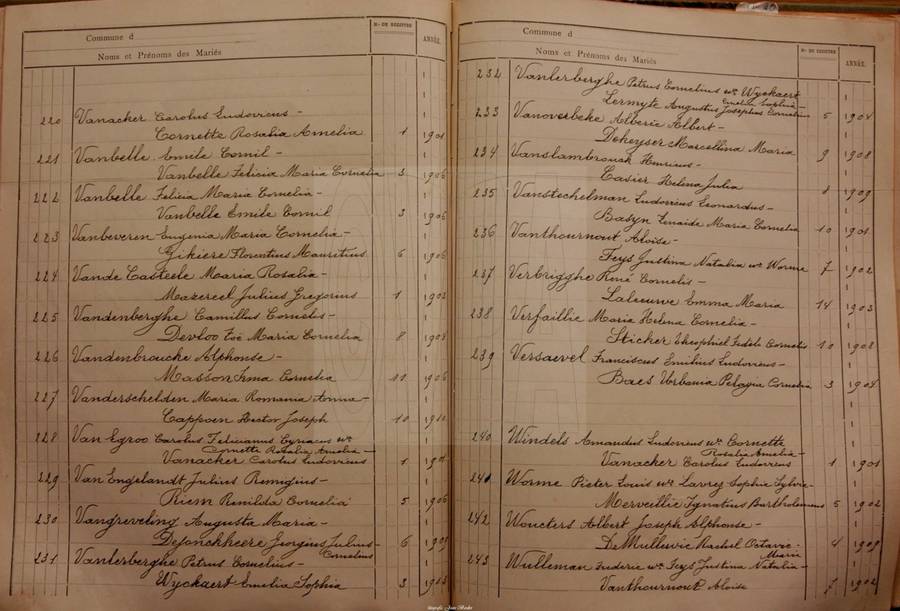 Commune d
Noms et Prénoms des Mariés
Nº DE REGISTRE
ANNÉE
220 Vanacker Carolus Ludovicus -
Cornette Rosalia Amelia 1 1901
221 Vanbelle Emile Cornil -
Vanbelle Felicia Maria Cornelia 3 1906
222 Vanbelle Felicia Maria Cornelia -
Vanbelle Emile Cornil 3 1906
223 Vanbeveren Eugenia Maria Cornelia -
Gikiere Florentius Mauritius 6 1906
224 Vande Casteele Maria Rosalia -
Mazereel Julius Gregorius 1
225 Vandenberghe Camillus Cornelis -
Devloo Zoë Maria Cornelia 8 1908
226 Vandenbroucke Alphonse -
Masson Irma Cornelia 11 1906
227 Vanderschelden Maria Romania Anna -
Cappoen Hector Joseph 10 1910
228 Van Egroo Carolus Felicianus Cyriacus we
Cornette Rosalia Amelia -
Vanacker Carolus Ludovicus 1 1901
229 Van Engelandt Julius Remigius -
Riem Renilda Cornelia 5 1906
230 Vangreveling Augusta Maria -
Dejonckheere Georgius Julius - 6 1909
Cornelius
231 Vanlerberghe Petrus Cornelius -
Wyckaert Emelia Sophia 3 1903
Commune d
Noms et Prénoms des Mariés
Nº DE REGISTRE
ANNÉE
232 Vanlerberghe Petrus Cornelius we Wyckaert
Emelia Sophia -
Lermyte Augustus Josephus Cornelius 5 1904
233 Vanoverbeke Alberic Albert -
Dekeyser Marcellina Maria 9 1908
234 Vanslambrouck Henricus -
Casier Helena Julia 8 1909
235 Vanstechelman Ludovicus Leonardus -
Basyn Zenaïde Maria Cornelia 10 1901
236 Vanthournout Aloïse -
Feys Justina Natalia we Worme 7 1902
237 Verbrigghe René Cornelis -
Laleeuwe Emma Maria 14 1903
238 Verfaillie Maria Helena Cornelia -
Sticker Theophiel Fidele Cornelis 10 1908
239 Versaevel Franciscus Emilius Ludovicus -
Baes Urbania Pelagia Cornelia 3 1904
240 Windels Amandus Ludovicus we Cornette
Rosalia Amelia -
Vanacker Carolus Ludovicus 1 1901
241 Worme Pieter Louis we Lavrey Sophia Sylvie -
Merveillie Ignatius Bartholomeus 5 1902
242 Woucters Albert Joseph Alphonse -
DeMullewie Rachel Octavie - 4 1909
Maria
243 Wulleman Frederic we Feys Justina Natalia -
Vanthournout Aloïse 7 1902